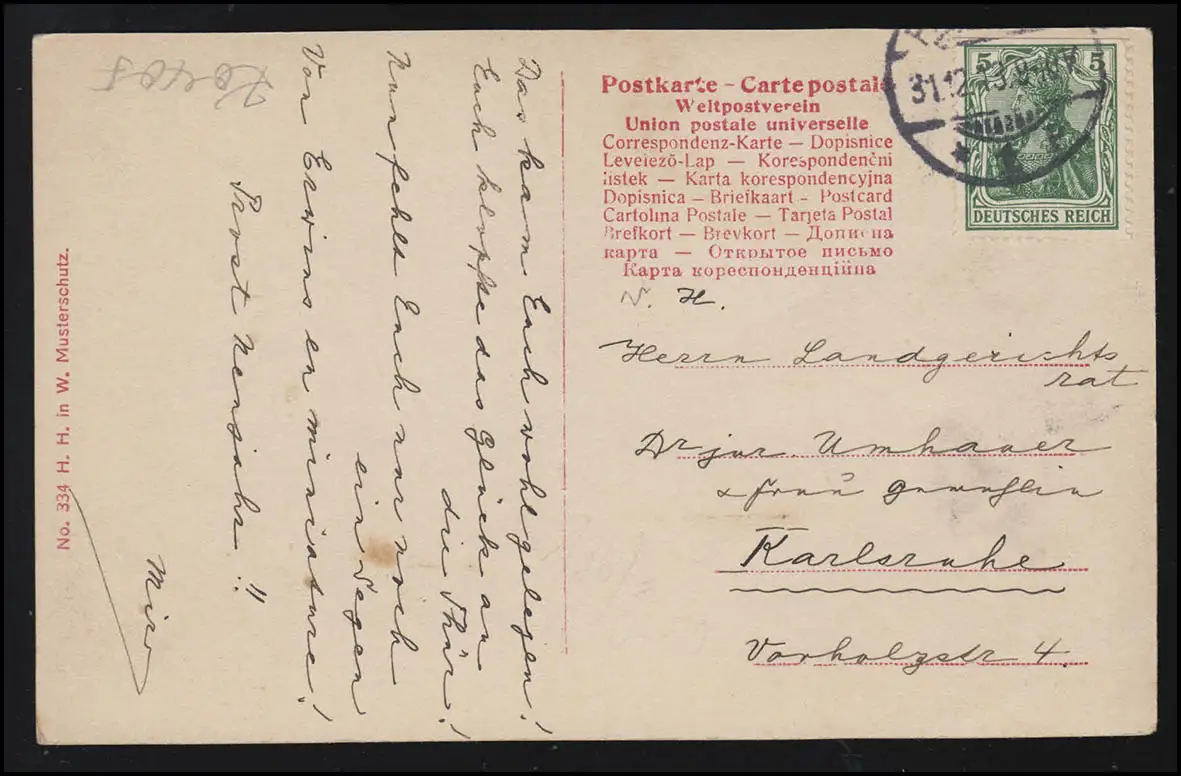 Postkarte – Carte postale
Weltpostverein
Union postale universelle
Correspondenz-Karte — Dopisnice
Levelező-Lap — Korespondenčni
listek — Karta korespondencyjna
Dopisnica — Briefkaart - Postcard
Cartolina Postale — Tarjeta Postal
Brefkort — Brevkort — Дописна
карта — Открытое письмо
Карта кореспонденційна
31.12.13.
5 5
DEUTSCHES REICH
H.
Herrn Landgerichts
rat
Dr jur. Umhauer
& Frau
Karlsruhe
Vorholzstr 4.
Das kam Euch wohl gelegen!
Euch klopfte das Glück an
die Thür!
Nun fehlt Euch nur noch
ein Segen
Von Erwins en miniature!
Prost Neujahr!!
No. 334 H. H. in W. Musterschutz.